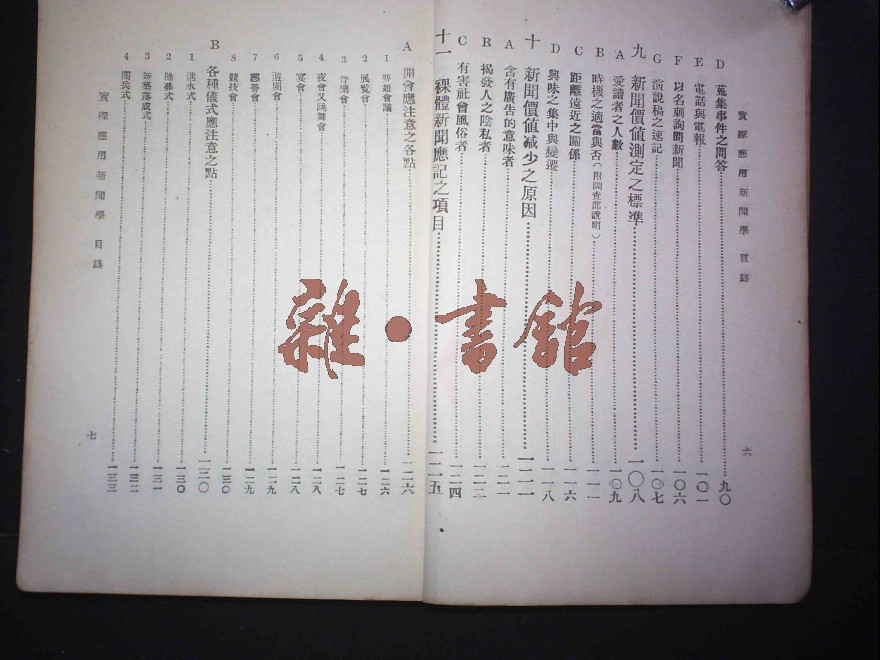 實際應用新聞學 目錄
六
D 蒐集事件之問答 九〇
E 電話與電報 一〇一
F 以名刺詢問新聞 一〇六
G 演說稿之速記 一〇七
九 新聞價值測定之標準 一〇八
A 愛讀者之人數 一〇九
B 時機之適當與否(附調查部說明) 一一一
C 距離遠近之關係 一一六
D 興味之集中與變遷 一一八
十 新聞價值減少之原因
A 含有廣告的意味者
B 揭發人之陰私者
C 有害社會風俗者 一二四
十一 裸體新聞應記之項目 一二五
A 開會應注意之各點 一二六
1 普通會議 一二六
2 展覽會 一二七
3 音樂會 一二七
4 夜會又跳舞會 一二八
5 宴會 一二八
6 遊園會 一二九
7 慈善會 一二九
8 競技會 一三〇
B 各種儀式應注意之點
1 進水式 一三〇
2 除幕式 一三一
3 新築落成式 一三二
4 閱兵式
實際應用新聞學 目錄
七
雜·書館